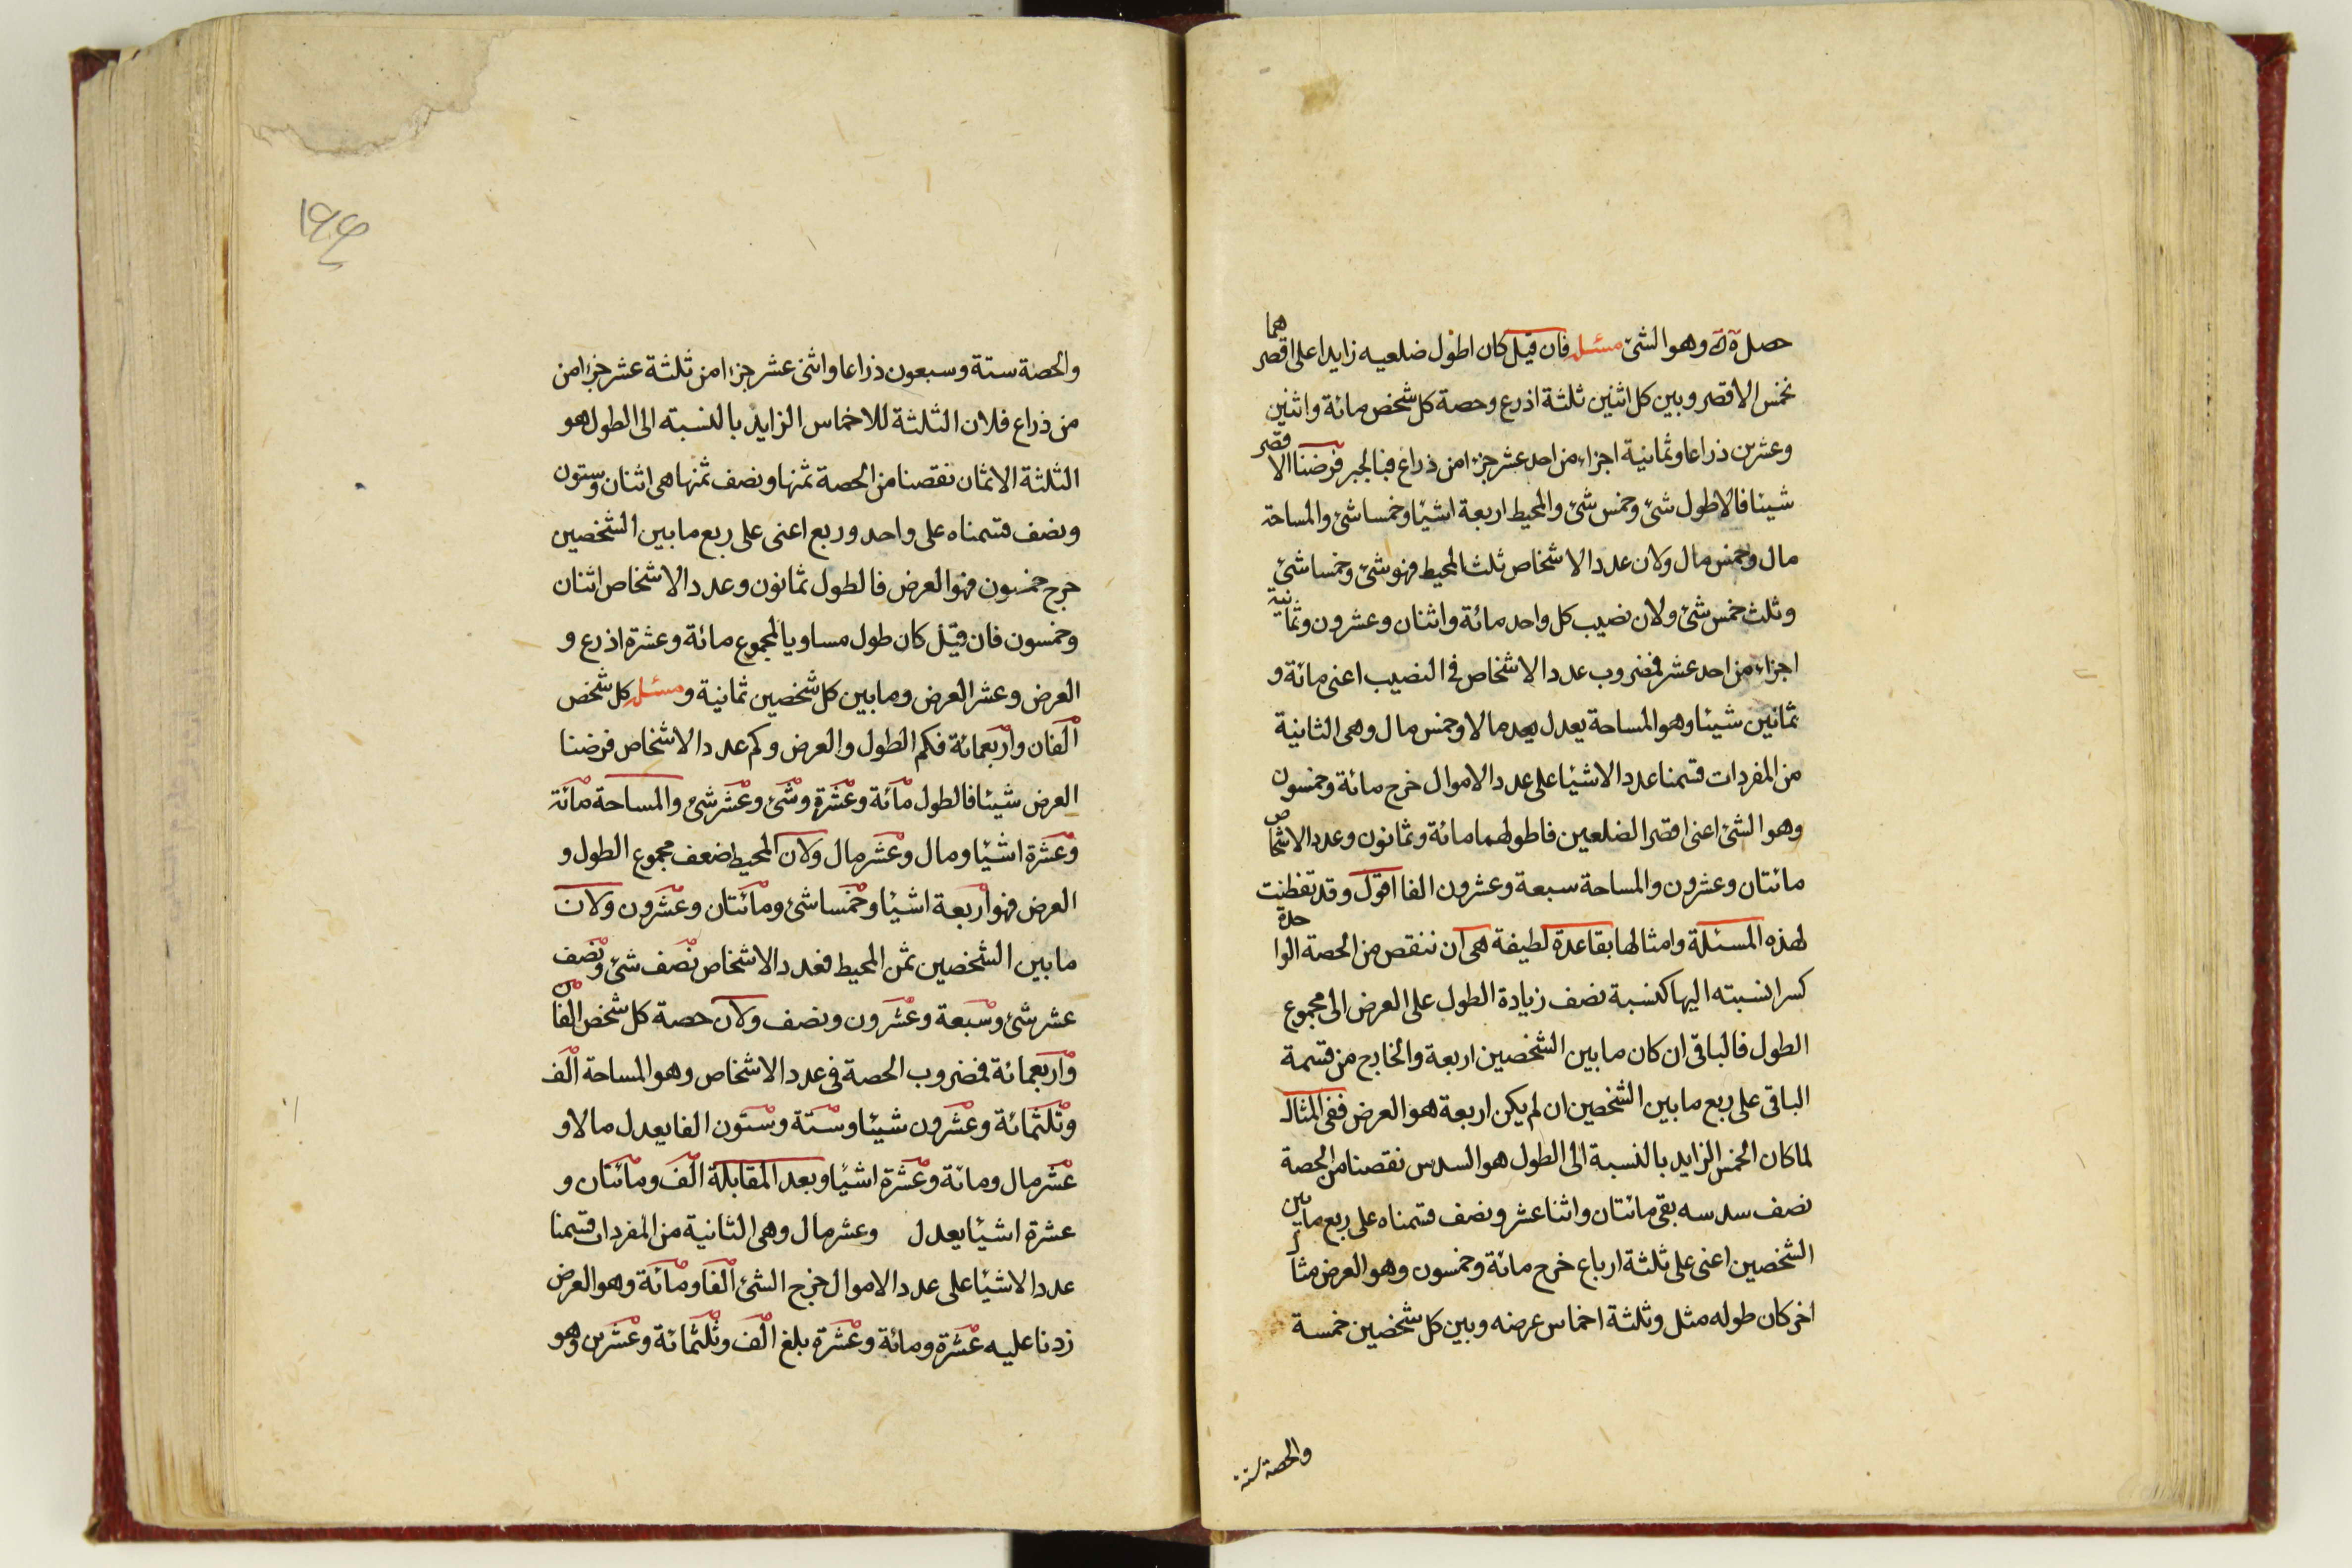 حصل وهو الشئ مسئلة فان قيل كان اطول ضلعيه زايدا على اقصرهما
بخمس الاقصر وبين كل اثنين ثلثة اذرع وحصة كل شخص مائة واثنين
وعشرين ذراعا وثمانية اجزاء من احد عشر جزءا من ذراع فبالجبر فرضنا الاقصر
شيئا فالاطول شئ وخمس شئ والمحيط اربعة اشيا وخمسا شئ والمساحة
مال وخمس مال ولان عدد الاشخاص ثلث المحيط فهو شئ وخمسا شئ
وثلث خمس شئ ولان نصيب كل واحد مائة واثنان وعشرون وثمانية
اجزاء من احد عشر فمضروب عدد الاشخاص فى النصيب اعنى مائة و
ثمانين شيئا وهو المساحة يعدل مالا وخمس مال وهى الثانية
من المفردات قسمنا عدد الاشيا على عدد الاموال خرج مائة وخمسون
وهو الشئ اعنى اقصر الضلعين فاطولهما مائة وثمانون وعدد الاشخاص
مائتان وعشرون والمساحة سبعة وعشرون الفا اقول وقد تفطنت
لهذه المسئلة وامثالها بقاعدة لطيفة هى ان ننقص من الحصة الواحدة
كسرا نسبته اليها كنسبة نصف زيادة الطول على العرض الى مجموع
الطول فالباقى ان كان ما بين الشخصين اربعة والخارج من قسمة
الباقى على ربع ما بين الشخصين ان لم يكن اربعة هو العرض ففى المثال
لما كان الخمس الزايد بالنسبة الى الطول هو السدس نقصنا من الحصة
نصف سدسه بقى مائتان واثنا عشر ونصف قسمناه على ربع ما بين
الشخصين اعنى على ثلثة ارباع خرج مائة وخمسون وهو العرض مثال
اخر كان طوله مثل وثلثة اخماس عرضه وبين كل شخصين خمسة
والحصة ستة
والحصة ستة وسبعون ذراعا واثنى عشر جزءا من ثلثة عشر جزءا من
من ذراع فلان الثلثة للاخماس الزايد بالنسبته الى الطول هو
الثلثة الاثمان نقصنا من الحصة ثمنها ونصف ثمنها هى اثنان وستون
ونصف قسمناه على واحد وربع اعنى على ربع ما بين الشخصين
خرج خمسون فهو العرض فالطول ثمانون وعدد الاشخاص اثنان
وخمسون فان قيل كان طول مساويا لمجموع مائة وعشرة اذرع و
العرض وعشر العرض وما بين كل شخصين ثمانية و مسئلة كل شخص
الفان واربعمائة فكم الطول والعرض وكم عدد الاشخاص فرضنا
العرض شيئا فالطول مائة وعشرة وشئ وعشر شئ والمساحة مائة
وعشرة اشيا ومال وعشر مال ولان المحيط ضعف مجموع الطول و
العرض فهو اربعة اشيا وخمسا شئ ومائتان وعشرون ولان
ما بين الشخصين ثمن المحيط فعدد الاشخاص نصف شئ ونصف
عشر شئ وسبعة وعشرون ونصف ولان حصة كل شخص الفان
واربعمائة فمضروب الحصة فى عدد الاشخاص وهو المساحة الف
وثلثمائة وعشرون شيئا وستة وستون الفا يعدل مالا و
عشر مال ومائة وعشرة اشيا وبعد المقابلة الف ومائتان و
عشرة اشيا يعدل وعشر مال وهى الثانية من المفردات قسمنا
عدد الاشيا على عدد الاموال خرج الشئ الفا ومائة وهو العرض
زدنا عليه عشرة ومائة وعشرة بلغ الف وثلثمائة وعشرين وهو